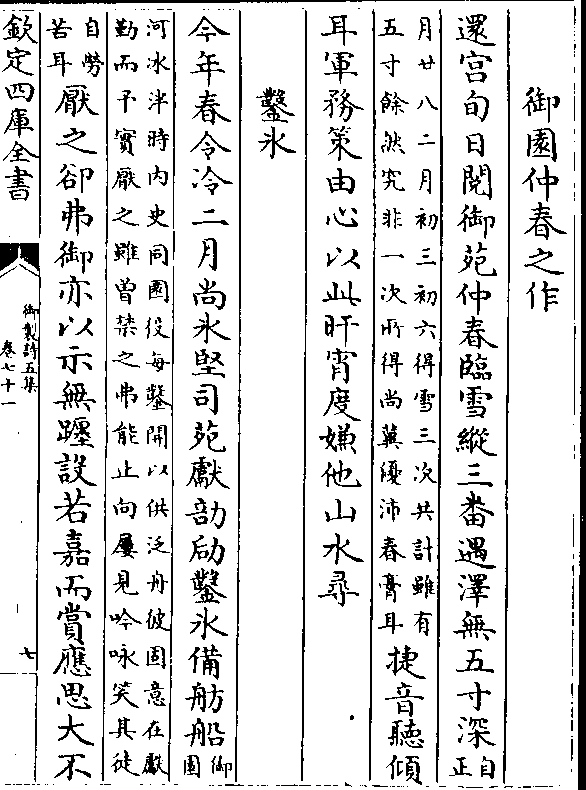 御園仲春之作
還宮旬日閱御苑仲春臨雪縱三畨遇澤無五寸深自正
月廿八二月初三初六得雪三次共計雖有
五寸餘然究非一次所得尚冀優沛春膏耳捷音聽傾
耳軍務策由心以此旰宵度嫌他山水尋
鑿氷
今年春令冷二月尚氷堅司苑獻㔻劶鑿氷備舫船御園
河冰泮時內史同園役每鑿開以供泛舟彼固意在獻
勤而予實厭之雖曽禁之弗能止向屢見吟咏笑其徒
自勞
苦耳厭之卻弗御亦以示無躔設若嘉而賞應思大不
欽定四庫全書
御製詩五集
卷七十一
七